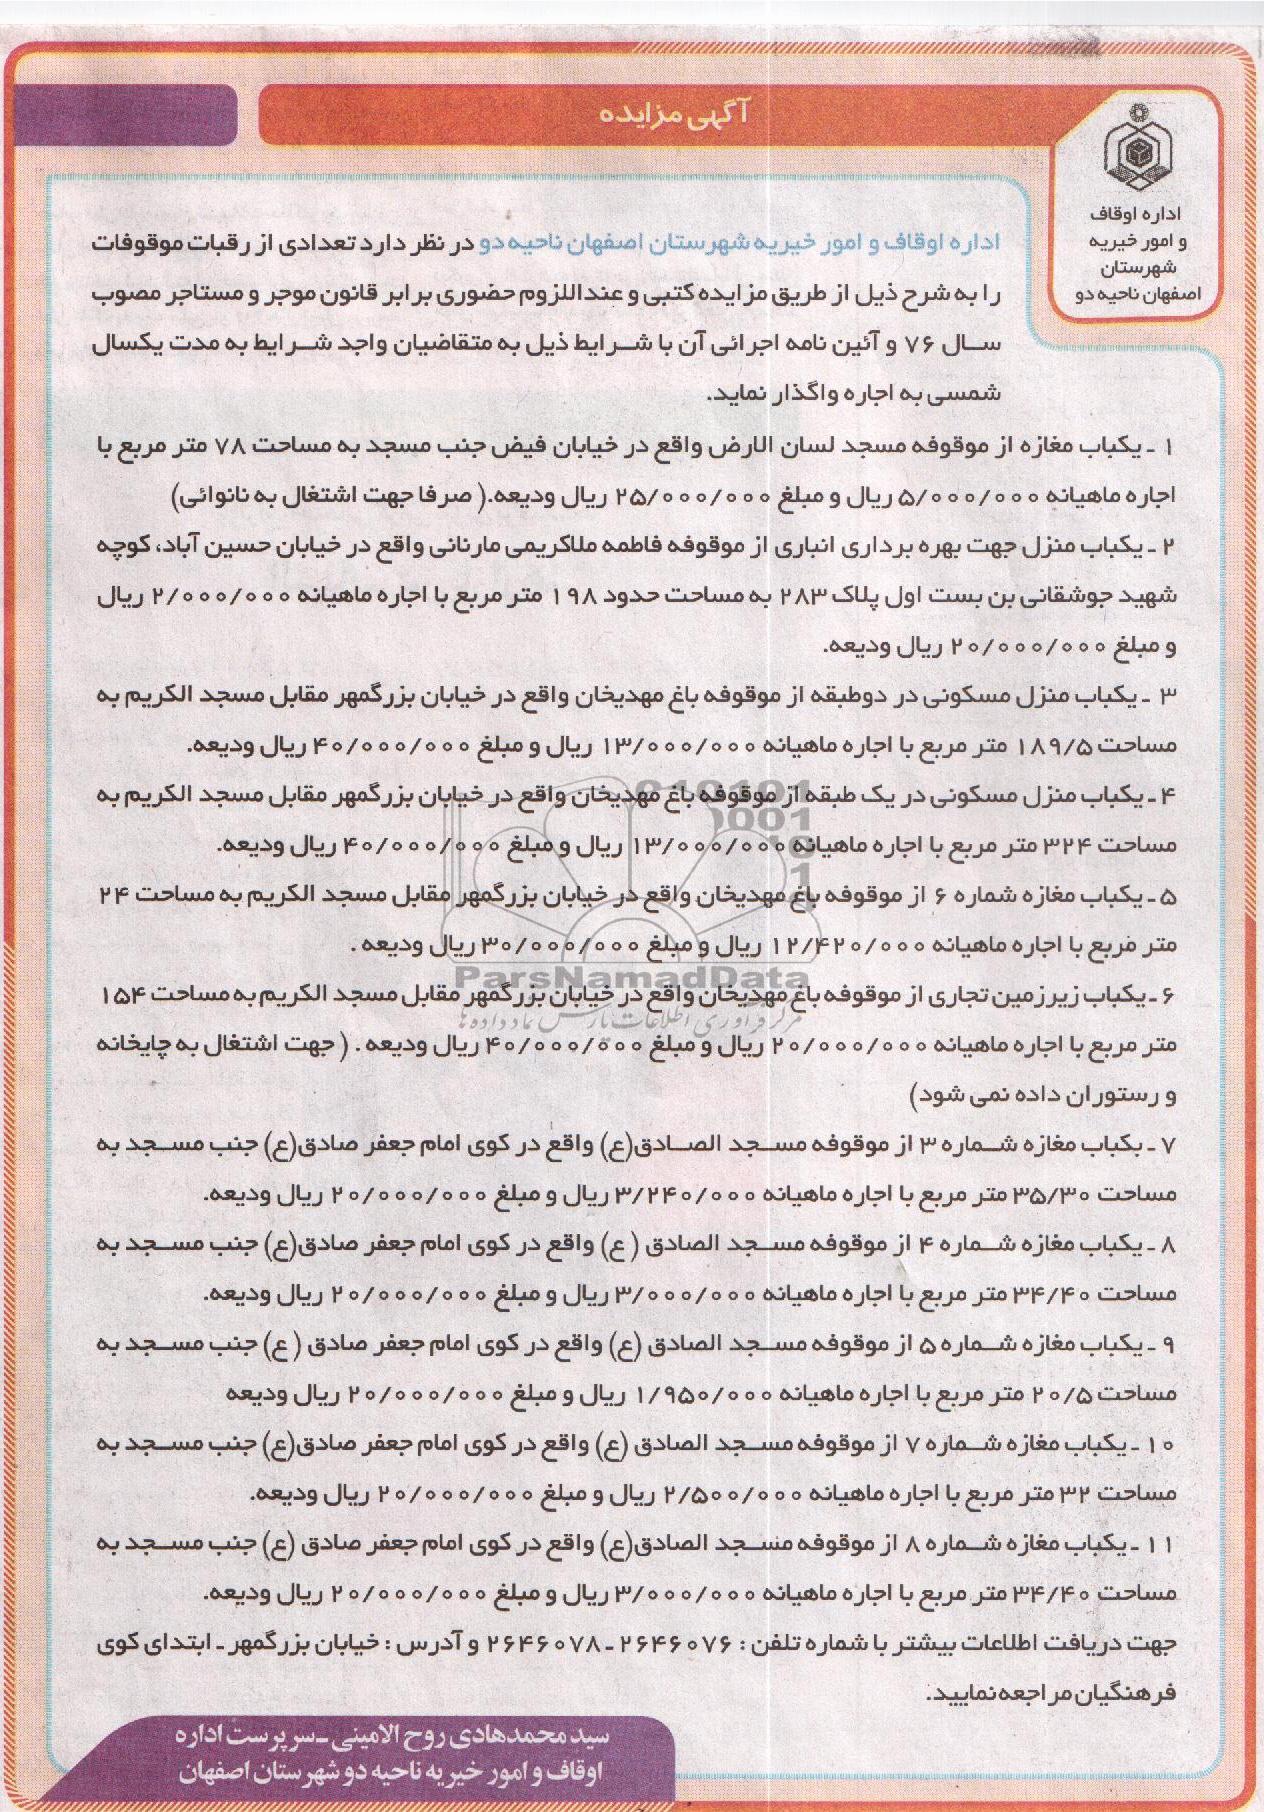 آگهی مزایده
اداره اوقاف
و امور خیریه
شهرستان
اصفهان ناحیه دو
اداره اوقاف و امور خیریه شهرستان اصفهان ناحیه دو در نظر دارد تعدادی از رقبات موقوفات
را به شرح ذیل از طریق مزایده کتبی و عنداللزوم حضوری برابر قانون موجر و مستاجر مصوب
سال ۷۶ و آئین نامه اجرائی آن با شرایط ذیل به متقاضیان واجد شرایط به مدت یکسال
شمسی به اجاره واگذار نماید.
۱ ـ یکباب مغازه از موقوفه مسجد لسان الارض واقع در خیابان فیض جنب مسجد به مساحت ۷۸ متر مربع با
اجاره ماهیانه ۵/۰۰۰/۰۰۰ ریال و مبلغ ۲۵/۰۰۰/۰۰۰ ریال ودیعه.( صرفا جهت اشتغال به نانوائی)
۲ ـ یکباب منزل جهت بهره برداری انباری از موقوفه فاطمه ملاکریمی مارنانی واقع در خیابان حسین آباد، کوچه
شهید جوشقانی بن بست اول پلاک ۲۸۳ به مساحت حدود ۱۹۸ متر مربع با اجاره ماهیانه ۲/۰۰۰/۰۰۰ ریال
و مبلغ ۲۰/۰۰۰/۰۰۰ ریال ودیعه.
۳ ـ یکباب منزل مسکونی در دوطبقه از موقوفه باغ مهدیخان واقع در خیابان بزرگمهر مقابل مسجد الکریم به
مساحت ۱۸۹/۵ متر مربع با اجاره ماهیانه ۱۳/۰۰۰/۰۰۰ ریال و مبلغ ۴۰/۰۰۰/۰۰۰ ریال ودیعه.
۴ ـ یکباب منزل مسکونی در یک طبقه از موقوفه باغ مهدیخان واقع در خیابان بزرگمهر مقابل مسجد الکریم به
مساحت ۳۲۴ متر مربع با اجاره ماهیانه ۱۳/۰۰۰/۰۰۰ ریال و مبلغ ۴۰/۰۰۰/۰۰۰ ریال ودیعه.
۵ ـ یکباب مغازه شماره ۶ از موقوفه باغ مهدیخان واقع در خیابان بزرگمهر مقابل مسجد الکریم به مساحت ۲۴
متر مربع با اجاره ماهیانه ۱۲/۴۲۰/۰۰۰ ریال و مبلغ ۳۰/۰۰۰/۰۰۰ ریال ودیعه .
ParsNamadData
۶ ـ یکباب زیرزمین تجاری از موقوفه باغ مهدیخان واقع در خیابان بزرگمهر مقابل مسجد الکریم به مساحت ۱۵۴
مرکز فرآوری اطلاعات پارس نماد داده ها
متر مربع با اجاره ماهیانه ۲۰/۰۰۰/۰۰۰ ریال و مبلغ ۴۰/۰۰۰/۰۰۰ ریال ودیعه . ( جهت اشتغال به چایخانه
و رستوران داده نمی شود)
۷ ـ یکباب مغازه شماره ۳ از موقوفه مسجد الصادق(ع) واقع در کوی امام جعفر صادق(ع) جنب مسجد به
مساحت ۳۵/۳۰ متر مربع با اجاره ماهیانه ۳/۲۴۰/۰۰۰ ریال و مبلغ ۲۰/۰۰۰/۰۰۰ ریال ودیعه.
۸ ـ یکباب مغازه شماره ۴ از موقوفه مسجد الصادق ( ع) واقع در کوی امام جعفر صادق(ع) جنب مسجد به
مساحت ۳۴/۴۰ متر مربع با اجاره ماهیانه ۳/۰۰۰/۰۰۰ ریال و مبلغ ۲۰/۰۰۰/۰۰۰ ریال ودیعه.
۹ ـ یکباب مغازه شماره ۵ از موقوفه مسجد الصادق (ع) واقع در کوی امام جعفر صادق ( ع) جنب مسجد به
مساحت ۲۰/۵ متر مربع با اجاره ماهیانه ۱/۹۵۰/۰۰۰ ریال و مبلغ ۲۰/۰۰۰/۰۰۰ ریال ودیعه
۱۰ ـ یکباب مغازه شماره ۷ از موقوفه مسجد الصادق (ع) واقع در کوی امام جعفر صادق(ع) جنب مسجد به
مساحت ۳۲ متر مربع با اجاره ماهیانه ۲/۵۰۰/۰۰۰ ریال و مبلغ ۲۰/۰۰۰/۰۰۰ ریال ودیعه.
۱۱ ـ یکباب مغازه شماره ۸ از موقوفه مسجد الصادق(ع) واقع در کوی امام جعفر صادق (ع) جنب مسجد به
مساحت ۳۴/۴۰ متر مربع با اجاره ماهیانه ۳/۰۰۰/۰۰۰ ریال و مبلغ ۲۰/۰۰۰/۰۰۰ ریال ودیعه.
جهت دریافت اطلاعات بیشتر با شماره تلفن : ۲۶۴۶۰۷۶ ـ ۲۶۴۶۰۷۸ و آدرس : خیابان بزرگمهر ـ ابتدای کوی
فرهنگیان مراجعه نمایید.
سید محمدهادی روح الامینی ـ سرپرست اداره
اوقاف و امور خیریه ناحیه دو شهرستان اصفهان